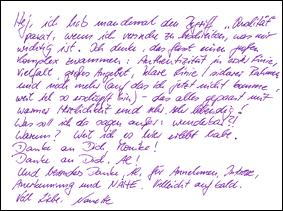 Hej, ich hab manchmal den Begriff „Qualität"
parat, wenn ich versuche zu beschreiben, was mir
wichtig ist. Ich denke, das fasst einen großen
Komplex zusammen: Authentizität in erster Linie,
Vielfalt, großes Angebot, klare Linie / Rahmen
und noch mehr (auf das ich jetzt nicht komme,
weil ich so bin), das alles gepaart mit
warme Herzlichkeit und sehr, sehr lebendig!
Was soll ich da sagen außer: wunderbar?!
Warum? Weil ich es hier erlebt habe.
Danke an Dich, Monika!
Danke an Dich, Al!
Und besonders Danke, Al, für Annehmen, Interesse,
Anerkennung und NÄHE. Vielleicht auf bald.
Voll Liebe,